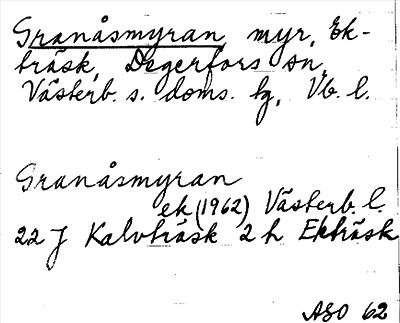 Granåsmyran, myr, Ek-
träsk, Degerfors sn,
Västerb. s. doms. tg, Vb. l.
Granåsmyran
ek (1962) Västerb. l.
22 J Kalvträsk 2 h Ekträsk
ASO 62